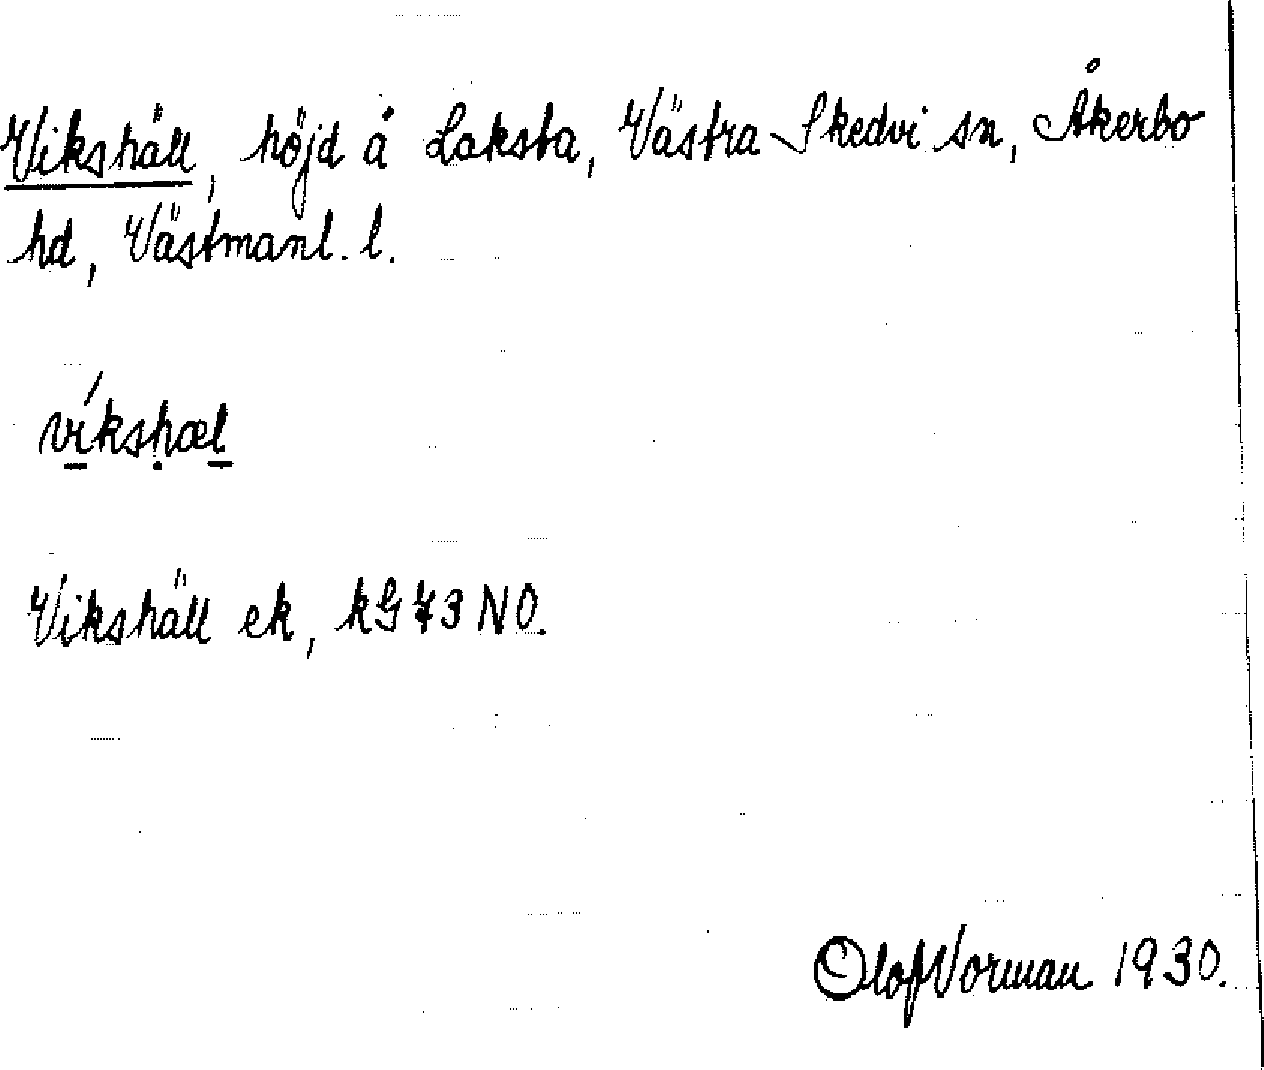 Vikshäll, höjd å Laksta, Västra Skedvi sn, Åkerbo
hd, Västmanl. l.
víkshæl
Vikshäll ek, kG 73 NO.
Olof Vorman 1930.